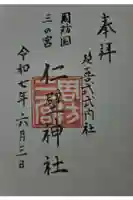 奉拝
延喜式式内社
周防国
三の宮
仁壁神社
令和七年六月三日